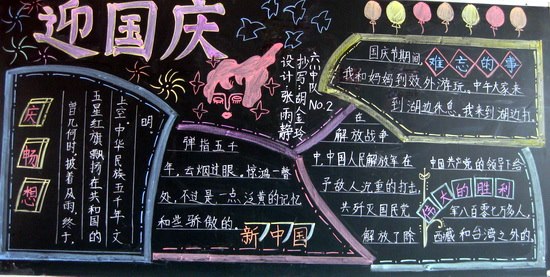 迎国庆
六中队
No.2
抄写:胡金玲
设计:张雨静
国庆节期间,难忘的事
我和妈妈到效外游玩,中午大家来
到湖边休息,我来到湖边打
庆
畅
想
曾几何时,披着从雨,终于
五星红旗飘扬在共和国的
上空,中华民族五千年文
明.
弹指五千
年,去烟过眼,惊鸿一瞥
处,不过是一点泛黄的记忆
和些骄傲的.
新中国
在
解放战争
中,中国人民解放军在
予敌人沉重的打击,
共歼灭国民党,
解放了除
中国共产党的领导下给
伟大的胜利
军八百零七万多人,
西藏和台湾之外的,